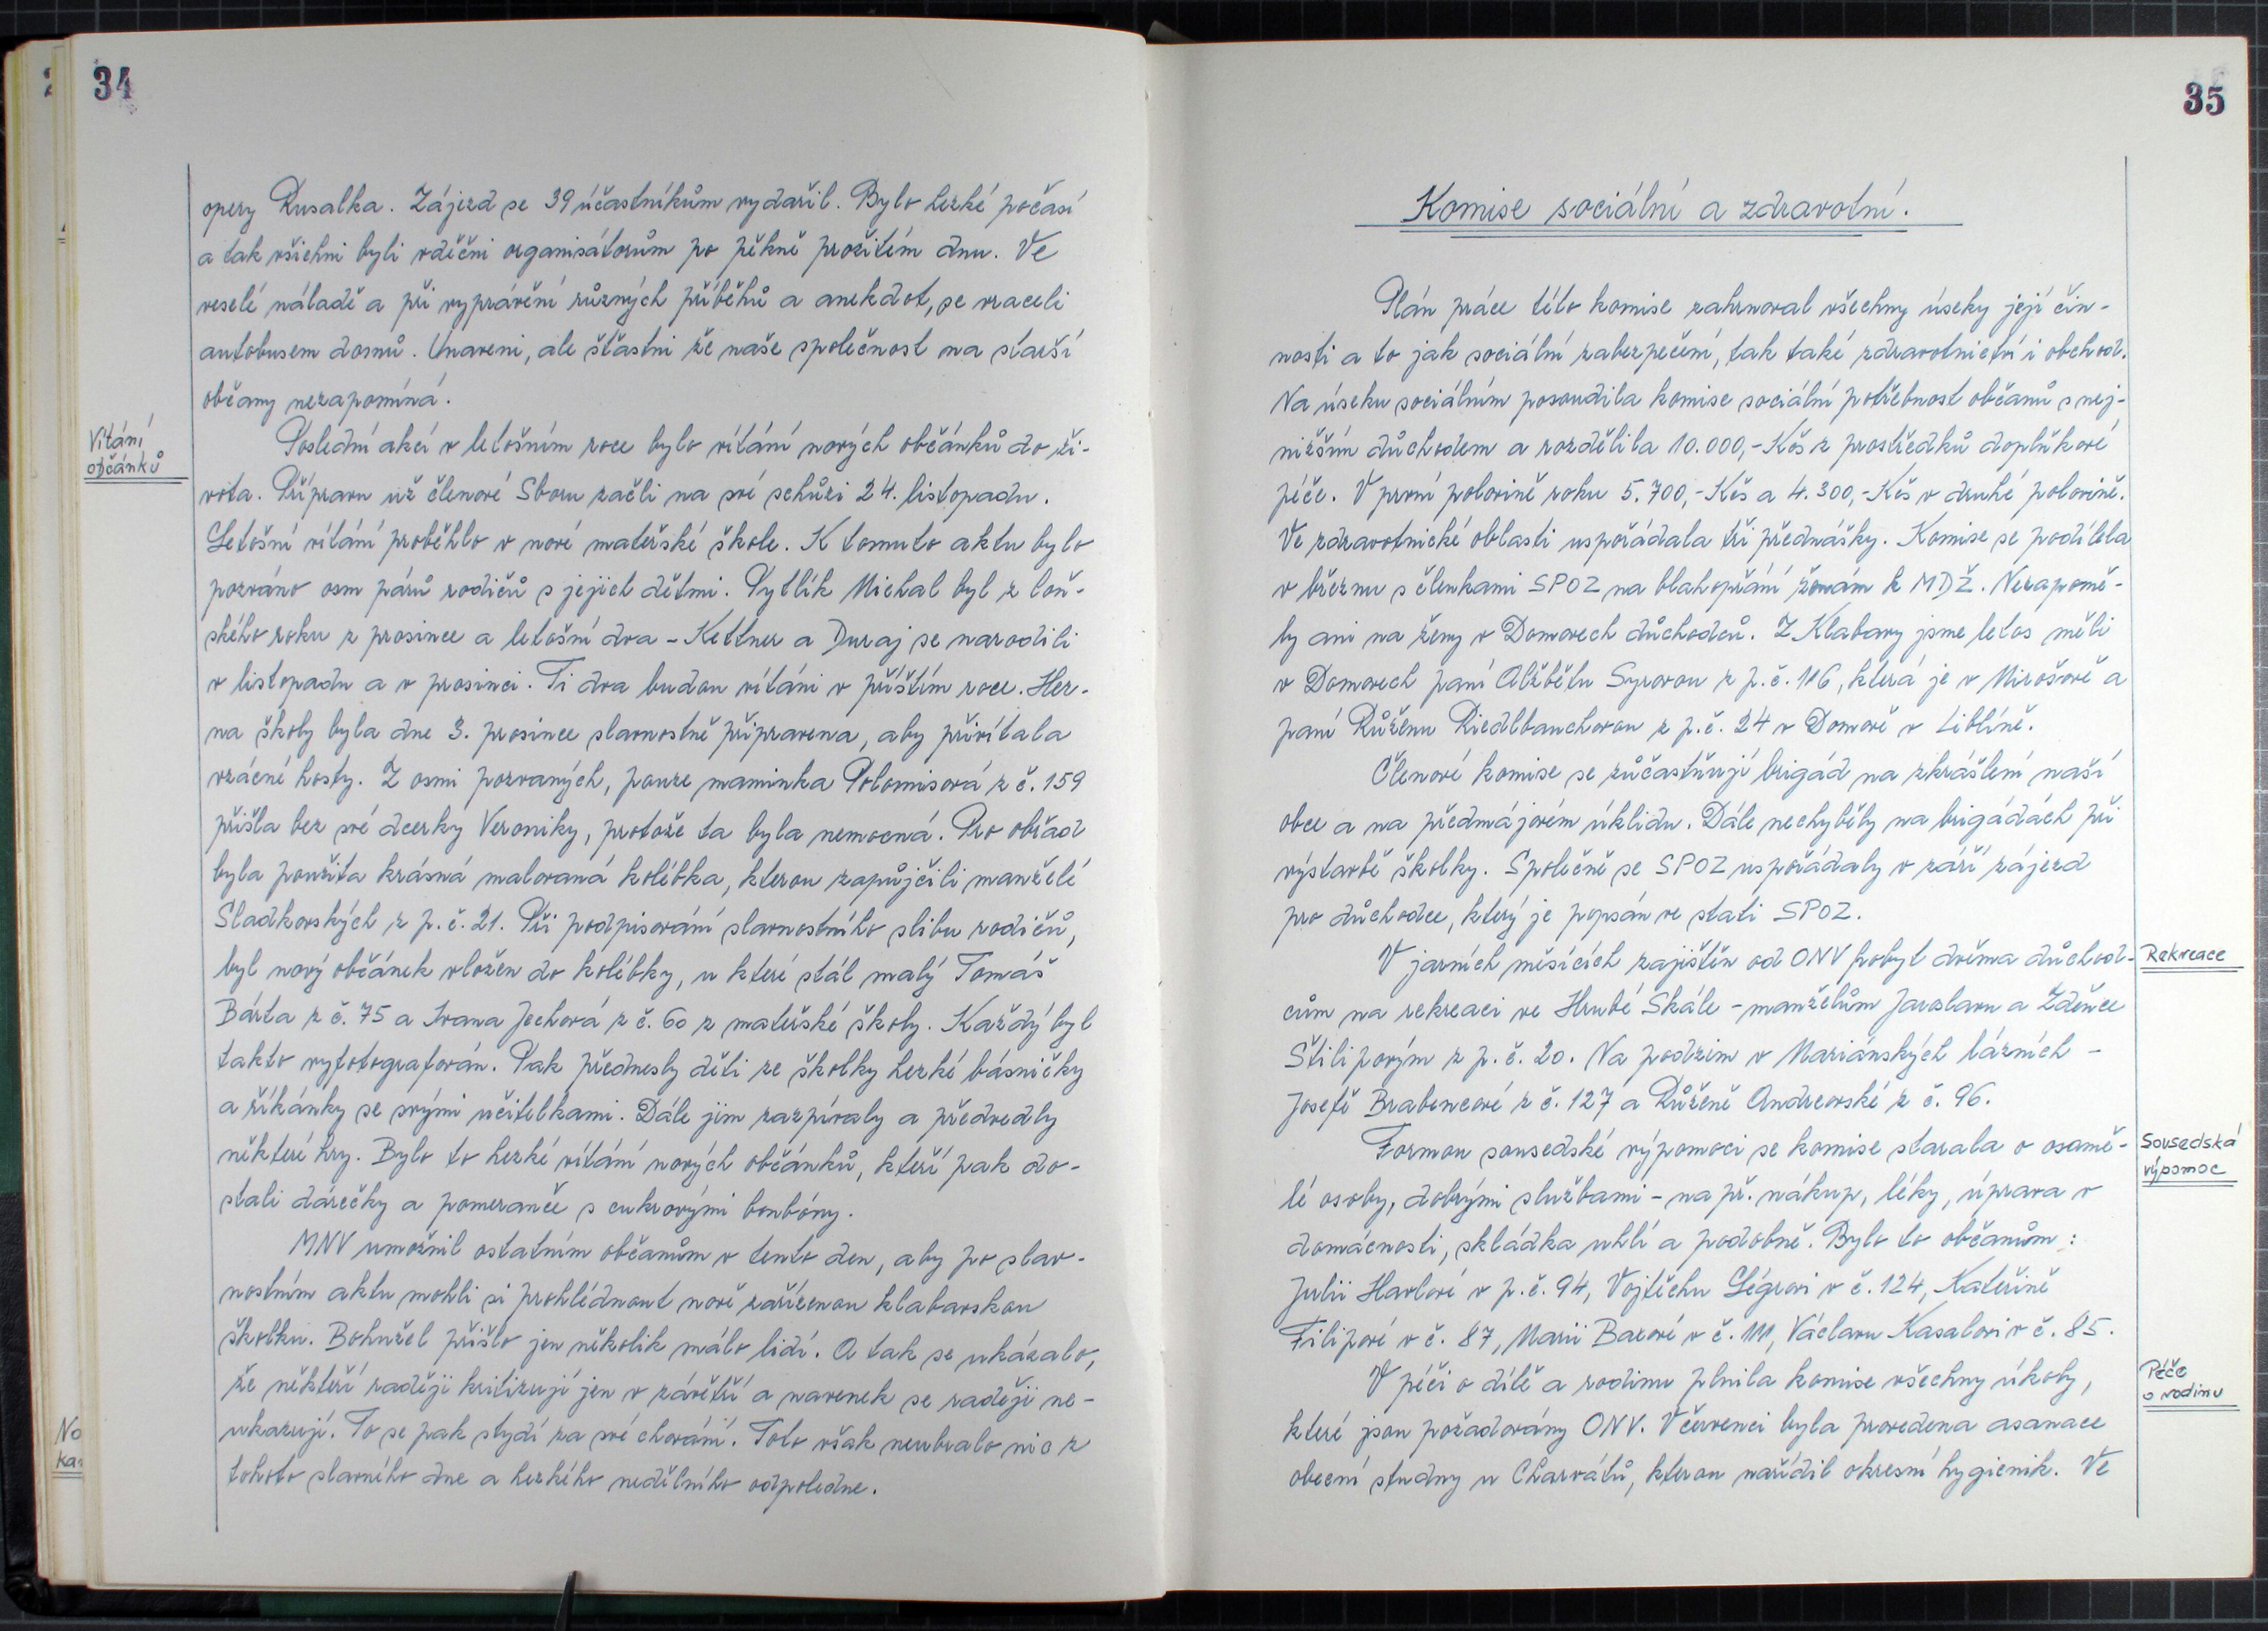 34
opery Rusalka. Zájezd se 39 účastníkům vydařil. Bylo hezké počasí
a tak všichni byli vděčni organisátorům po pěkně prožitém dnu. Ve
veselé náladě a při vyprávění různých příběhů a anekdot, se vraceli
autobusem domů. Unaveni, ale šťastni že naše společnost na starší
občany nezapomíná.
Vítání
občánků
Poslední akcí v letošním roce bylo vítání nových občánků do ži-
vota. Přípravu už členové Sboru začli na své schůzi 24. listopadu.
Letošní vítání proběhlo v nové mateřské škole. K tomuto aktu bylo
pozváno osm párů rodičů s jejich dětmi. Pytlík Michal byl z loň-
ského roku z prosince a letošní dva - Kettner a Duraj se narodili
v listopadu a v prosinci. Ti dva budou vítáni v příštím roce. Her-
na školy byla dne 3. prosince slavnostně připravena, aby přivítala
vzácné hosty. Z osmi pozvaných, pouze maminka Polomisová z č. 159
přišla bez své dcerky Veroniky, protože ta byla nemocná. Pro obřad
byla použita krásná malovaná kolébka, kterou zapůjčili manželé
Sladkovských z p.č. 21. Při podpisování slavnostního slibu rodičů,
byl nový občánek vložen do kolébky, u které stál malý Tomáš
Bárta z č. 75 a Ivana Jechová z č. 60 z mateřské školy. Každý byl
takto vyfotografován. Pak přednesly děti ze školky hezké básničky
a říkánky se svými učitelkami. Dále jim zazpívaly a předvedly
některé hry. Bylo to hezké vítání nových občánků, kteří pak do-
stali dárečky a pomeranče s cukrovými bonbóny.
MNV umožnil ostatním občanům v tento den, aby po slav-
nostním aktu mohli si prohlédnout nově zařízenou klabavskou
školku. Bohužel přišlo jen několik málo lidí. A tak se ukázalo,
že někteří raději kritizují jen v závětří a navenek se raději ne-
ukazují. To se pak stydí za své chování. Toto však neubralo nic z
tohoto slavného dne a hezkého nedělního odpoledne.
35
Komise sociální a zdravotní.
Plán práce této komise zahrnoval všechny úseky její čin-
nosti a to jak sociální zabezpečení, tak také zdravotnictví i obchod.
Na úseku sociálním posoudila komise sociální potřebnost občanů s nej-
nižším důchodem a rozdělila 10.000,- Kčs z prostředků doplňkové
péče. V první polovině roku 5.700,- Kčs a 4.300,- Kčs v druhé polovině.
Ve zdravotnické oblasti uspořádala tři přednášky. Komise se podílela
v březnu s členkami SPOZ na blahopřání ženám k MDŽ. Nezapomě-
ly ani na ženy v Domovech důchodců. Z Klabavy jsme letos měli
v Domovech paní Alžbětu Syrovou z p.č. 116, která je v Mirošově a
paní Růženu Riedlbauchovou z p.č. 24 v Domově v Liblíně.
Členové komise se zůčastňují brigád na zkrášlení naší
obce a na předmájovém úklidu. Dále nechyběly na brigádách při
výstavbě školky. Společně se SPOZ uspořádaly v září zájezd
pro důchodce, který je popsán ve stati SPOZ.
V jarních měsících zajištěn od ONV pobyt dvěma důchod-
Rekreace
cům na rekreaci ve Hrubé Skále - manželům Jaroslavu a Zdeňce
Štilipovým z p.č. 20. Na podzim v Mariánských lázních -
Josefě Brabencové z č. 127 a Růženě Andreovské z č. 96.
Formou sousedské výpomoci se komise starala o osamě-
Sousedská
výpomoc
lé osoby, dobrými službami - na př. nákup, léky, úprava v
domácnosti, skládka uhlí a podobně. Bylo to občanům:
Julii Havlové v p.č. 94, Vojtěchu Légrovi v č. 124, Kateřině
Filipové v č. 87, Marii Bazové v č. 111, Václavu Kasalovi v č. 85.
V péči o dítě a rodinu plnila komise všechny úkoly,
Péče
o rodinu
které jsou požadovány ONV. V červenci byla provedena asanace
obecní studny u Charvátů, kterou nařídil okresní hygienik. Ve